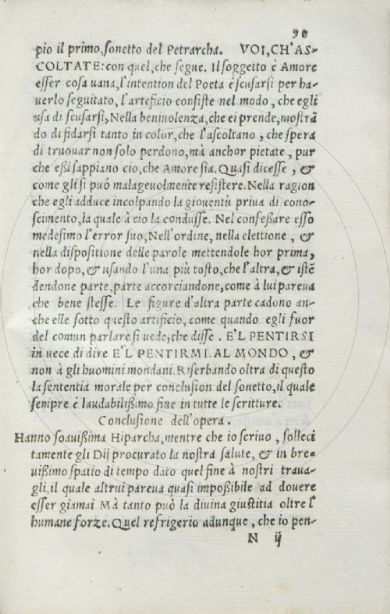 98
pio il primo sonetto del Petrarcha. VOI, CH'AS-
COLTATE: con quel, che segue. Il soggetto è Amore
esser cosa uana, l'intention del Poeta è scusarsi per ha-
uerlo seguitato, l'arteficio consiste nel modo, che egli
usa di scusarsi, Nella beniuolenza, che ei prende, mostrã
do di fidarsi tanto in color, che l'ascoltano, che spera
di truouar non solo perdono, mà anchor pietate, pur
che eßi sappiano cio, che Amore sia. Quasi dicesse, &
come gli si puó malageuolmente resistere. Nella ragion
che egli adduce incolpando la giouentù priua di cono-
scimento, la quale à cio la condusse. Nel confeßare esso
medesimo l'error suo, Nell'ordine, nella elettione, &
nella dispositione delle parole mettendole hor prima,
hor dopo, & usando l'una più tosto, che l'altra, & istẽ
dendone parte, parte accorciandone, come à lui pareua
che bene stesse. Le figure d'altra parte cadono an-
che elle sotto questo artificio, come quando egli fuor
del comun parlare si uede, che disse. E'L PENTIRSI
in uece di dire E'L PENTIRMI. AL MONDO, &
non à gli huomini mondani. Riserbando oltra di questo
la sententia morale per conclusion del sonetto, il quale
sempre è laudabilißimo fine in tutte le scritture.
Conclusione dell'opera.
Hanno soauißima Hiparcha, mentre che io scriuo, solleci
tamente gli Dij procurato la nostra salute, & in bre-
uißimo spatio di tempo dato quel fine à nostri traua-
gli, il quale altrui pareua quasi impoßibile ad douere
esser giamai Mà tanto può la diuina giustitia oltre l'
humane forze. Quel refrigerio adunque, che io pen-
N ij